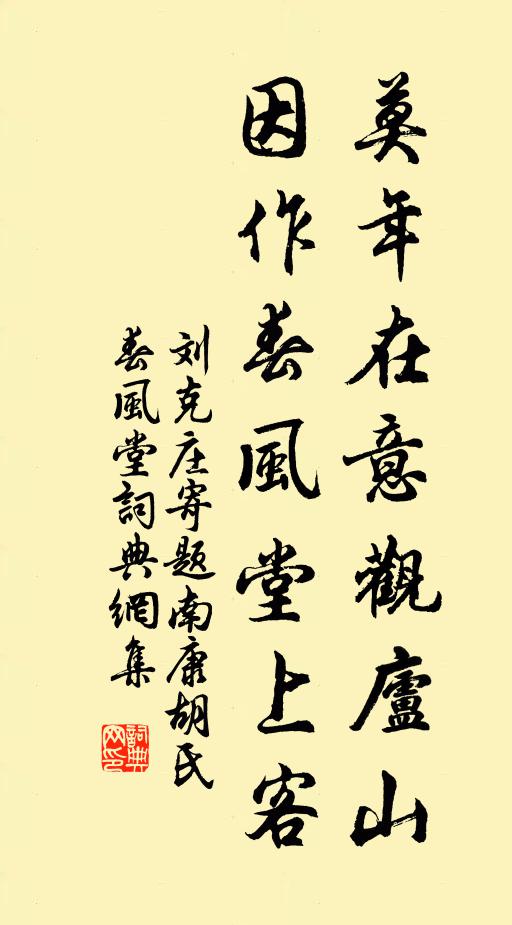 莫年在意觀廬山
因作春風堂上客
刘克庄寄题南康胡氏
春風堂詞典網集
詞典網印